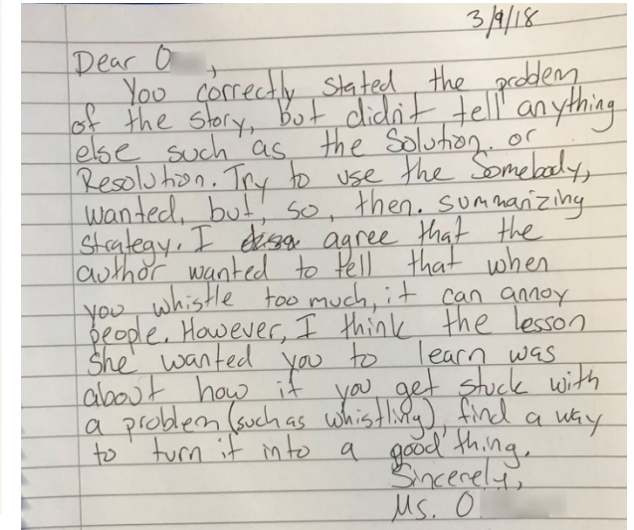 3/9/18
Dear O
You correctly stated the problem
of the story, but didn't tell anything
else such as the Solution. or
Resolution. Try to use the Somebody,
wanted, but, so, then. summarizing
strategy. I agree that the
author wanted to tell that when
you whistle too much, it can annoy
people. However, I think the lesson
She wanted you to learn was
about how if you get stuck with
a problem (such as whistling), find a way
to turn it into a good thing.
Sincerely,
Ms. O